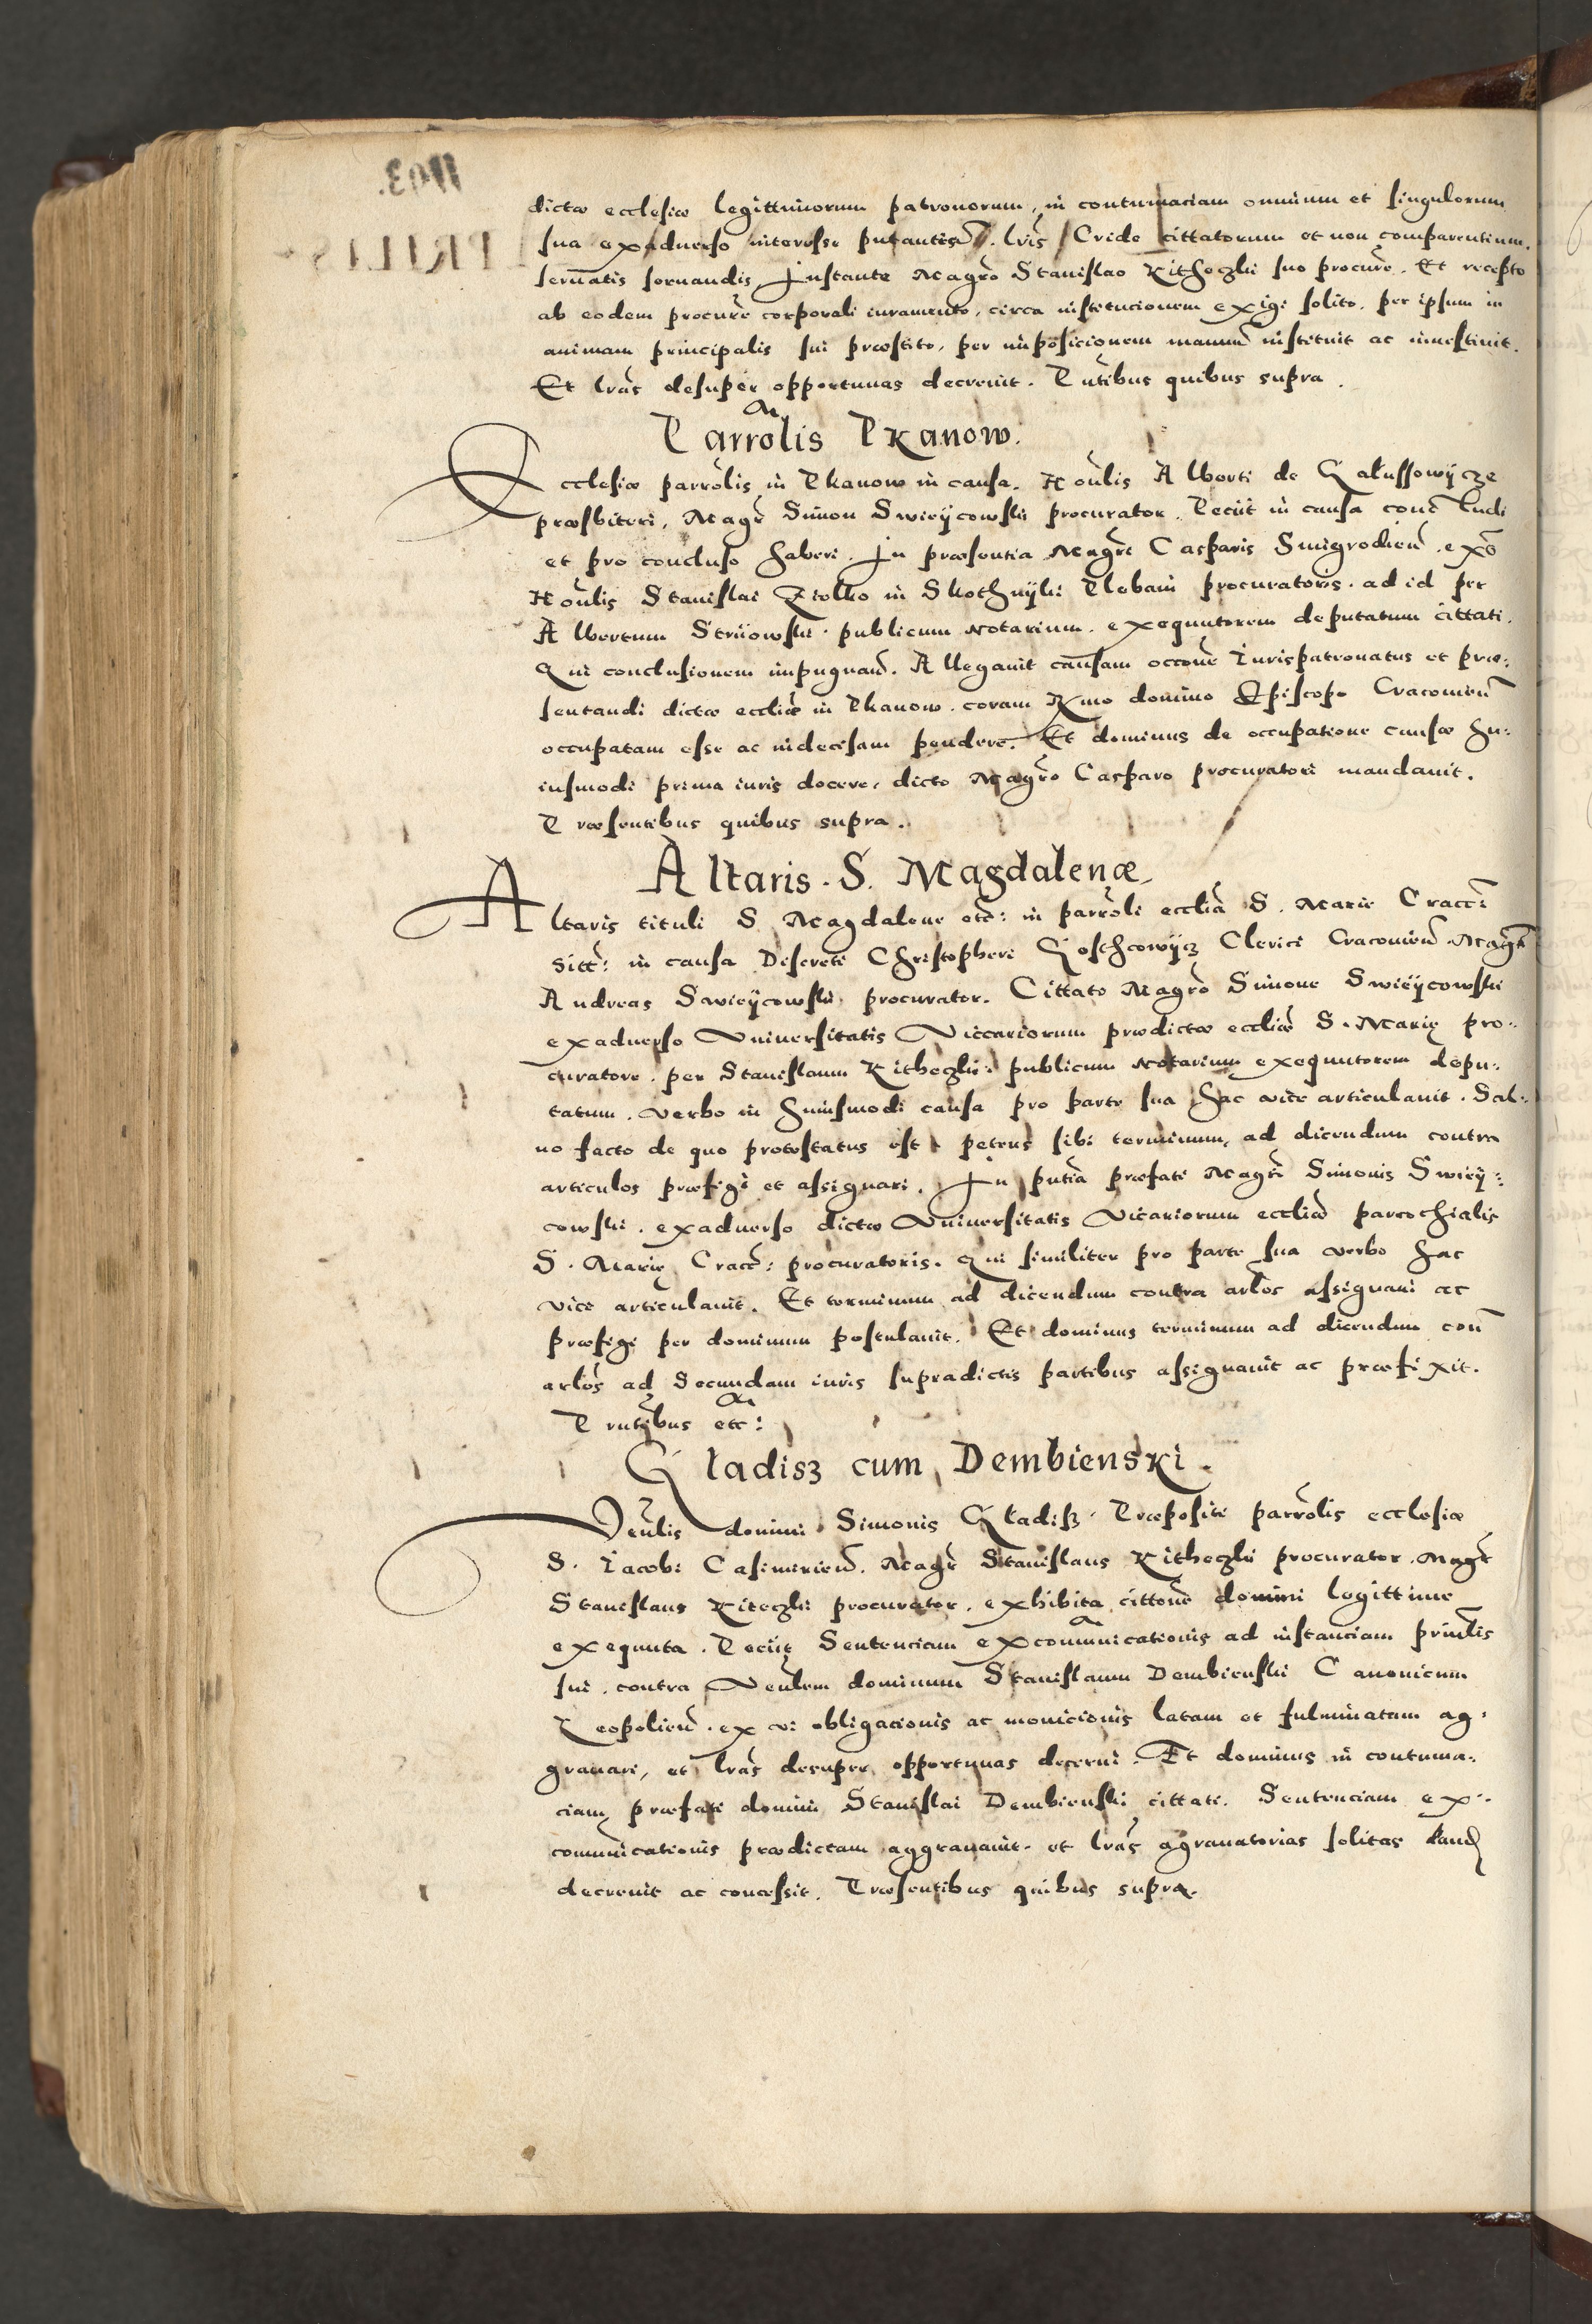 dictæ ecclesiæ legittimorum patronorum, in contumaciam omnium et singulorum
sua exaduerso interesse putantiũ. lrĩs Cride cittatorum et non comparentium.
seruatis seruandis, Instante Magr̃o Stanislao Kitheczki suo procur̃e. Et recepto
ab eodem procur̃e corporali iuramento, circa institucionem exigi solito, per ipsum in
animam principalis sui præstito, per imposicionem manuũ instituit ac inuestiuit.
Et lrãs desuper opportunas decreuit. Pñtibus quibus supra.
Parrõlis Pkanow.
Ecclesiæ parrõlis in Pkanow in causa. Hoñlis Alberti de Gałussowycze
præsbiteri, Magr̃ Simon Swieÿcowski procurator. Peciit in causa concludi
et pro concluso haberi. In præsentia Magr̃i Casparis Smigrodieñ. exõ
Hoñlis Stanislai Ziołko in Skothnyki Plebani procuratoris. ad id per
Albertum Striiowski publicum notarium. exequutorem deputatum cittati.
Qui conclusionem impugnañ. Allegauit causam occone Iurispatronatus et præ:
sentandi dictæ eccliæ in Pkanow. coram Rmo domino Episcopo Cracouieñ
occupatam esse ac indecisam pendere. Et dominus de occupatione causæ hu:
iusmodi prima iuris docere, dicto Magr̃o Casparo procuratori mandauit.
Præsentibus quibus supra.
Altaris. S. Magdalenæ.
Altaris tituli S. Magdalene etc: in parrõli ecclia S. Marie Cracc:
sitt: in causa Discreti Christopheri Goschcowycz Clerici Cracouieñ Magr̃
Andreas Swieÿcowski procurator. Cittato Magr̃o Simone Swieÿcowski
exaduerso Vniuersitatis Viccariorum prædictæ eccliæ S. Marię pro:
curatore. per Stanislaum Kitheczki publicum notarium exequutorem depu:
tatum. verbo in huiusmodi causa pro parte sua hac vice articulauit. Sal:
uo facto de quo protestatus est petens sibi terminum, ad dicendum contra
articulos præfigi et assignari. In pñtia præfati Magr̃i Simonis Swieÿ:
cowski. exaduerso dictæ Vniuersitatis Vicariorum eccliæ parrochialis
S. Marię Cracc: procuratoris. qui similiter pro parte sua verbo hac
vice articulauit. Et terminum ad dicendum contra arlos assignari ac
præfigi per dominum postulauit. Et dominus terminum ad dicendum coñ
arlos ad Secundam iuris supradictis partibus assignauit ac præfixit.
Pñtibus etc:
Gładisz cum Dembienski.
Veñlis domini Simonis Gładisz Præpositi parrõlis ecclesiæ
S. Iacobi Casimirieñ. Magr̃ Stanislaus Kitheczki procurator. Magr̃
Stanislaus Kiteczki procurator. exhibita cittone domini legittime
exequuta. Peciit Sentenciam excommunicationis ad instanciam prinñlis
sui. contra Veñlem dominum Stanislaum Dembienski Canonicum
Leopolieñ. ex vi obligacionis ac monicionis latam et fulminatam ag:
grauari, et lrãs desuper opportunas decerni. Et dominus in contuma:
ciam præfati domini Stanislai Dembienski cittati. Sentenciam ex:
communicationis prædictam aggrauauit. et lrãs agrauatorias solitas dand
decreuit ac concessit. Præsentibus quibus supra.